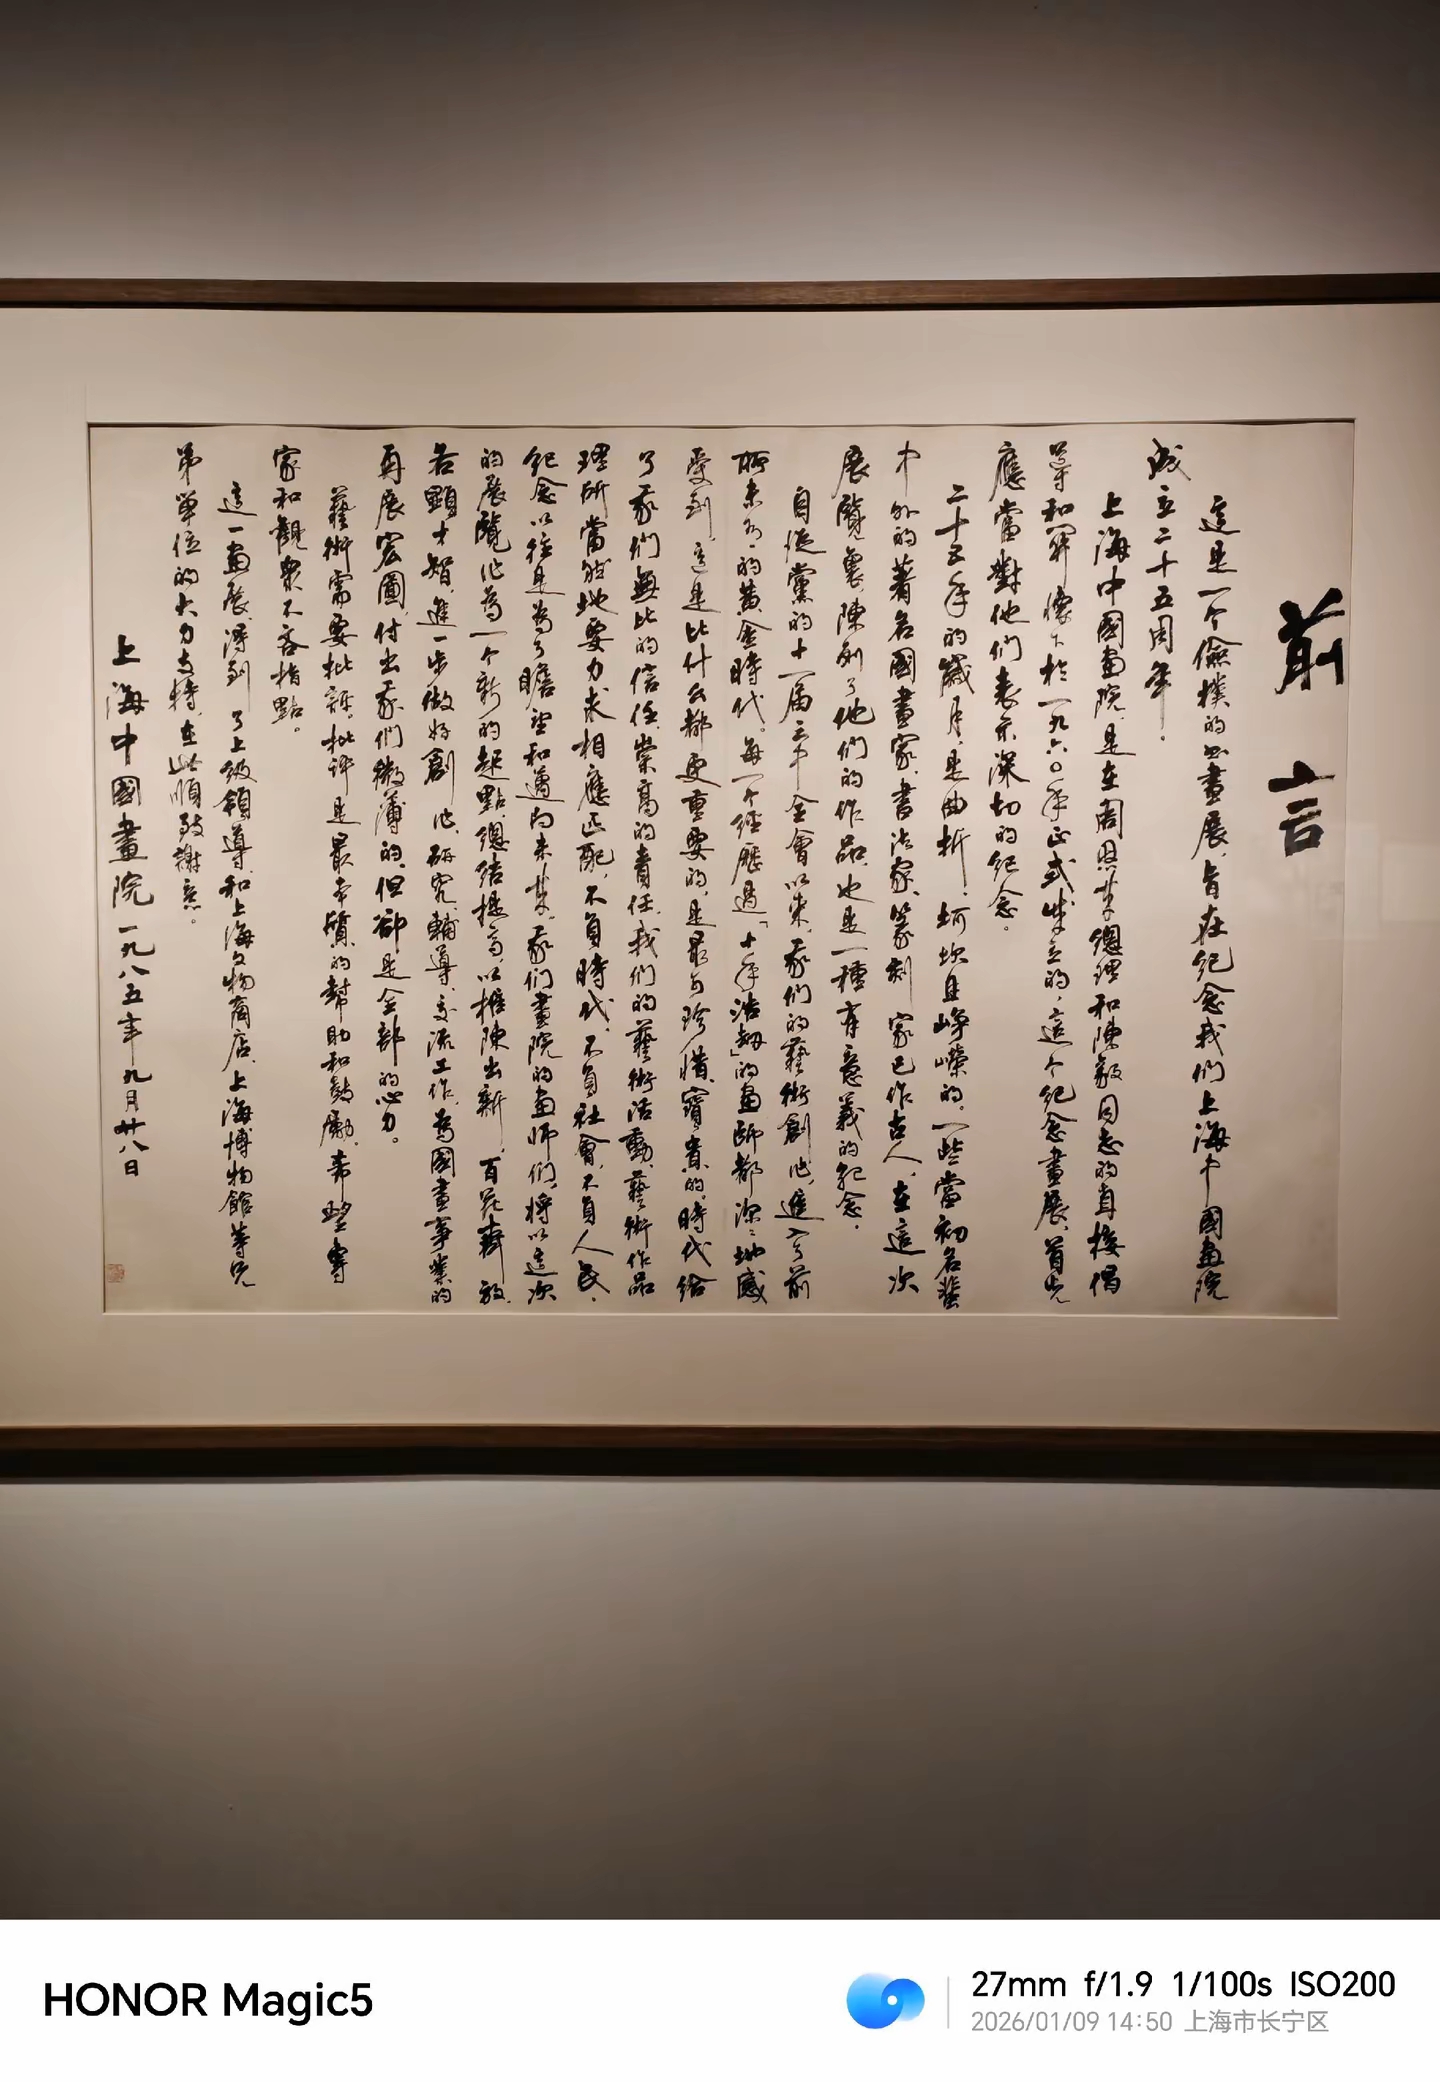 前言
這是一个儉樸的书畫展，旨在紀念我们上海中國畫院
成立二十五周年。
上海中國畫院，是在周恩来總理和陳毅同志的直接倡
導和關懷下於一九六〇年正式成立的，這个紀念畫展，首先
應當對他们表示深切的紀念。
二十五年的歲月，是曲折、坷坎且崢嶸的。一些當初名蜚
中外的著名國畫家、書法家、篆刻家已作古人，在這次
展覽裏，陳列了他们的作品，也是一種有意義的紀念。
自従黨的十一届三中全會以来，我们的藝術創作，進入了前
所未有的黄金時代。每一个經歷過「十年浩劫」的畫師都深深地感
受到，這是比什么都更重要的，是最可珍惜、寶貴的。時代给
了我们無比的信任，崇高的責任，我们的藝術活動、藝術作品
理所當然地要力求相應匹配，不負時代，不負社會，不負人民。
紀念以往是為了瞻望和邁向未来，我们畫院的画师们，將以這次
的展覽作為一个新的起點，總结提高，以推陳出新，百花齊放，
各顯才智，進一步做好創作、研究、輔導、交流工作，為國畫事業的
再展宏圖，付出我们微薄的，但卻是全部的心力。
藝術需要批評，批評是最本質的幫助和鼓勵，希望專
家和觀衆不吝指點。
這一画展，得到了上级領導，和上海文物商店、上海博物館等兄
弟單位的大力支持，在此順致謝意。
上海中國畫院 一九八五年九月廿八日
HONOR Magic5
27mm f/1.9 1/100s ISO200
2026/01/09 14:50 上海市长宁区